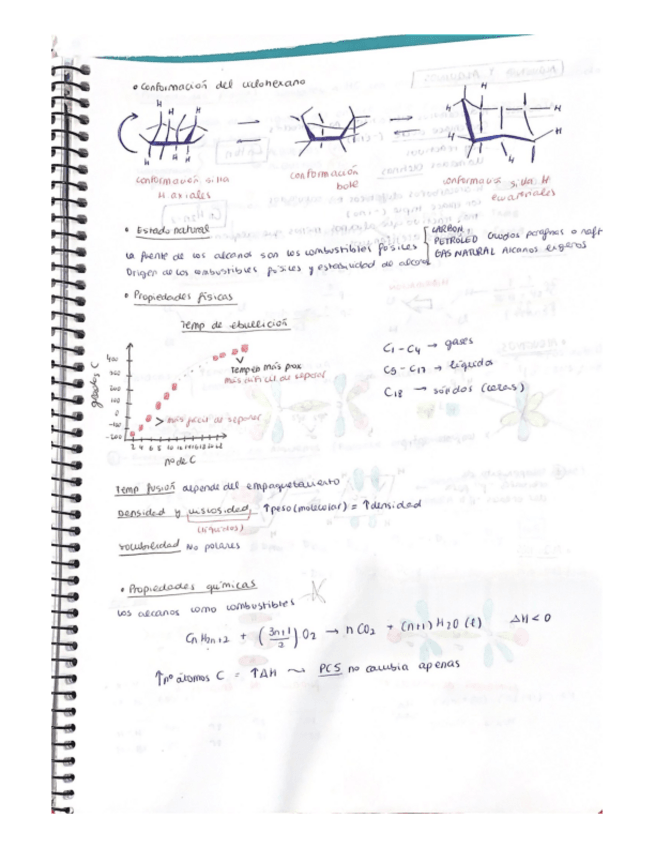 • Conformación del ciclohexano
H H H H
H H H H
H H H
H H
conformación silla
H axiales
conformación
bote
conformación silla H
ecuatoriales
• Estado natural
La fuente de los alcanos son los combustibles fósiles
CARBON
PETROLEO Crudos parafinas o naft
GAS NATURAL Alcanos ligeros
Origen de los combustibles fósiles y
• Propiedades físicas
Temp de ebullición
grados C
400
300
200
100
0
-100
-200
2 4 6 8 10 12 14 16 18
nº de C
Temp más prox
más difícil de separar
> más fácil de separar
C₁ - C₄ → gases
C₅ - C₁₇ → líquidos
C₁₈ → sólidos (ceras)
Temp fusión depende del empaquetamiento
Densidad y viscosidad, ↑peso (molecular) = ↑densidad
(líquidos)
solubilidad No polares
• Propiedades químicas
Los alcanos como combustibles
CnH2n+2 + (3n+1/2) O₂ → n CO₂ + (n+1) H₂O (l) ΔH < 0
↑nº átomos C = ↑ΔH ~ PCS no cambia apenas